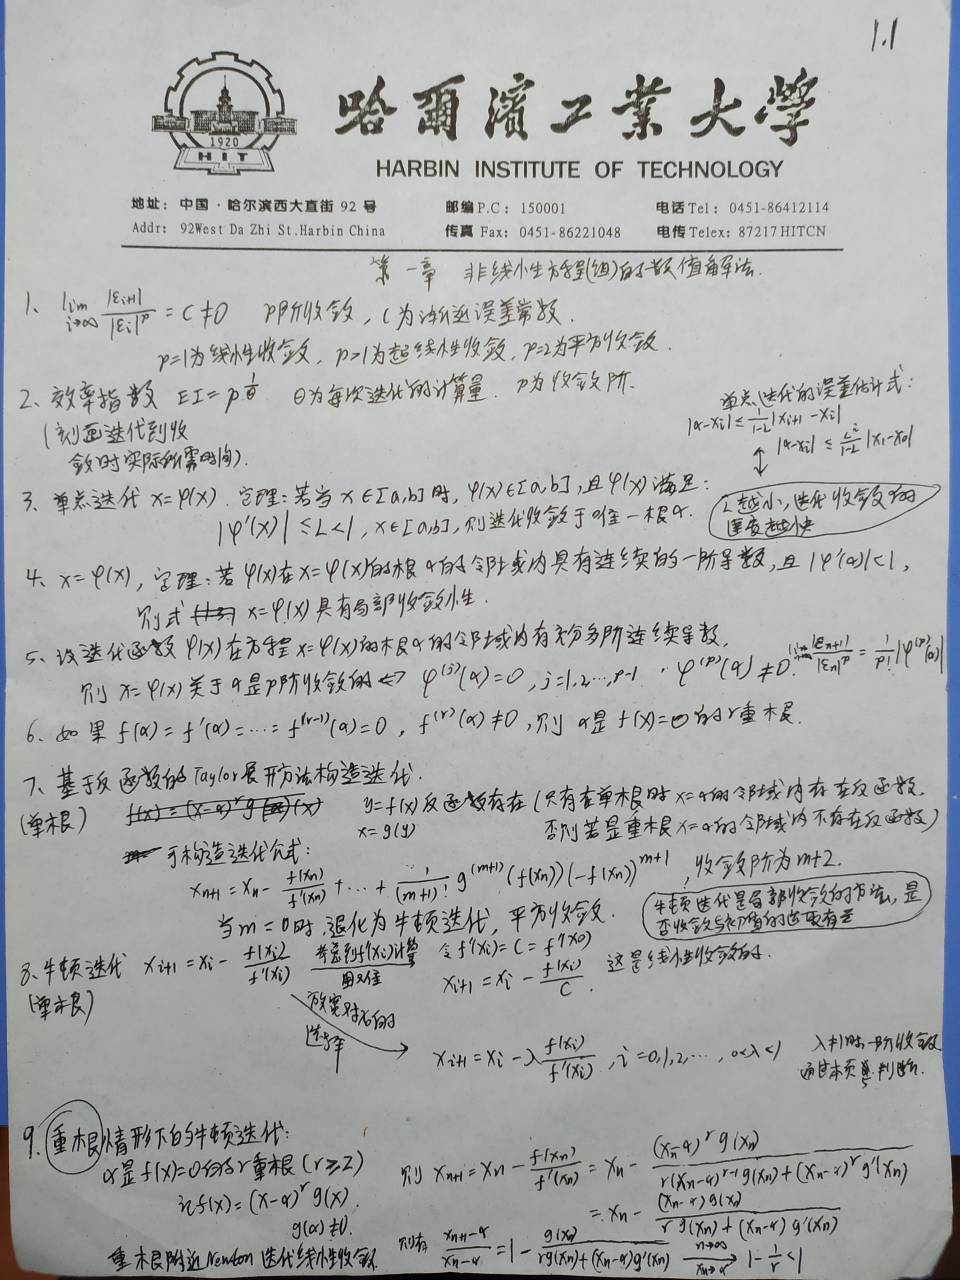 1.1
哈爾濱工業大學
HARBIN INSTITUTE OF TECHNOLOGY
1920
HIT
地址：中国·哈尔滨西大直街 92 号 邮编 P.C：150001 电话 Tel：0451-86412114
Addr：92West Da Zhi St.Harbin China 传真 Fax：0451-86221048 电传 Telex：87217 HITCN
第一章 非线性方程(组)的数值解法.
1、lim_{i→∞} |ε_{i+1}|/|ε_i|^p = C ≠ 0 p阶收敛，C为渐近误差常数.
p=1为线性收敛，p>1为超线性收敛，p=2为平方收敛.
2、效率指数 EI = p^{1/θ} θ为每次迭代的计算量. p为收敛阶.
(刻画迭代到收
敛时实际所需时间).
单点迭代的误差估计式：
|α-x_i| ≤ 1/(1-L) |x_{i+1} - x_i|
↕ |α-x_i| ≤ L^i/(1-L) |x_1-x_0|
3、单点迭代 x=φ(x). 定理：若当 x∈[a,b]时，φ(x)∈[a,b]，且φ(x)满足：
|φ'(x)| ≤ L < 1，x∈[a,b]，则迭代收敛于唯一根α.
L越小，迭代收敛的
速度越快
4、x=φ(x)，定理：若φ(x)在x=φ(x)的根α的邻域内具有连续的一阶导数，且|φ'(α)|<1，
则式 x=φ(x)具有局部收敛性.
5、设迭代函数φ(x)在方程x=φ(x)的根α的邻域内有充分多阶连续导数，
则 x=φ(x)关于α是p阶收敛的 ⇔ φ^{(j)}(α)=0，j=1,2,…,p-1 φ^{(p)}(α)≠0. lim_{n→∞} |ε_{n+1}|/|ε_n|^p = 1/p! |φ^{(p)}(α)|
6、如果 f(α)=f'(α)=…=f^{(r-1)}(α)=0，f^{(r)}(α)≠0，则α是f(x)=0的r重根.
7、基于反函数的Taylor展开方法构造迭代.
(单根) f(x)=(x-α)^r g(x) y=f(x)反函数存在(只有在单根时x=α的邻域内存在反函数.
x=g(y) 否则若是重根x=α的邻域内不存在反函数)
可构造迭代公式：
x_{n+1} = x_n - f(x_n)/f'(x_n) + … + 1/(m+1)! g^{(m+1)}(f(x_n))(-f(x_n))^{m+1}，收敛阶为m+2.
当m=0时，退化为牛顿迭代，平方收敛.
牛顿迭代是局部收敛的方法，是
否收敛与初值的选取有关
8、牛顿迭代 x_{i+1} = x_i - f(x_i)/f'(x_i) 考虑到f'(x_i)计算困难 令f'(x_i)=C=f'(x_0)
(单根) x_{i+1} = x_i - f(x_i)/C. 这是线性收敛的.
放宽对x_0的
选择
x_{i+1} = x_i - λ f(x_i)/f'(x_i)，i=0,1,2,…，0<λ<1 λ≠1时一阶收敛
通过本页5.判断.
9. 重根情形下的牛顿迭代：
α是f(x)=0的r重根(r≥2)
记f(x)=(x-α)^r g(x).
g(α)≠0.
则 x_{n+1} = x_n - f(x_n)/f'(x_n) = x_n - (x_n-α)^r g(x_n) / [r(x_n-α)^{r-1} g(x_n) + (x_n-α)^r g'(x_n)]
= x_n - (x_n-α)g(x_n) / [r g(x_n) + (x_n-α) g'(x_n)]
重根附近Newton迭代线性收敛. 则有 (x_{n+1}-α)/(x_n-α) = 1 - g(x_n)/[rg(x_n)+(x_n-α)g'(x_n)] →(n→∞, x_n→α) 1 - 1/r < 1